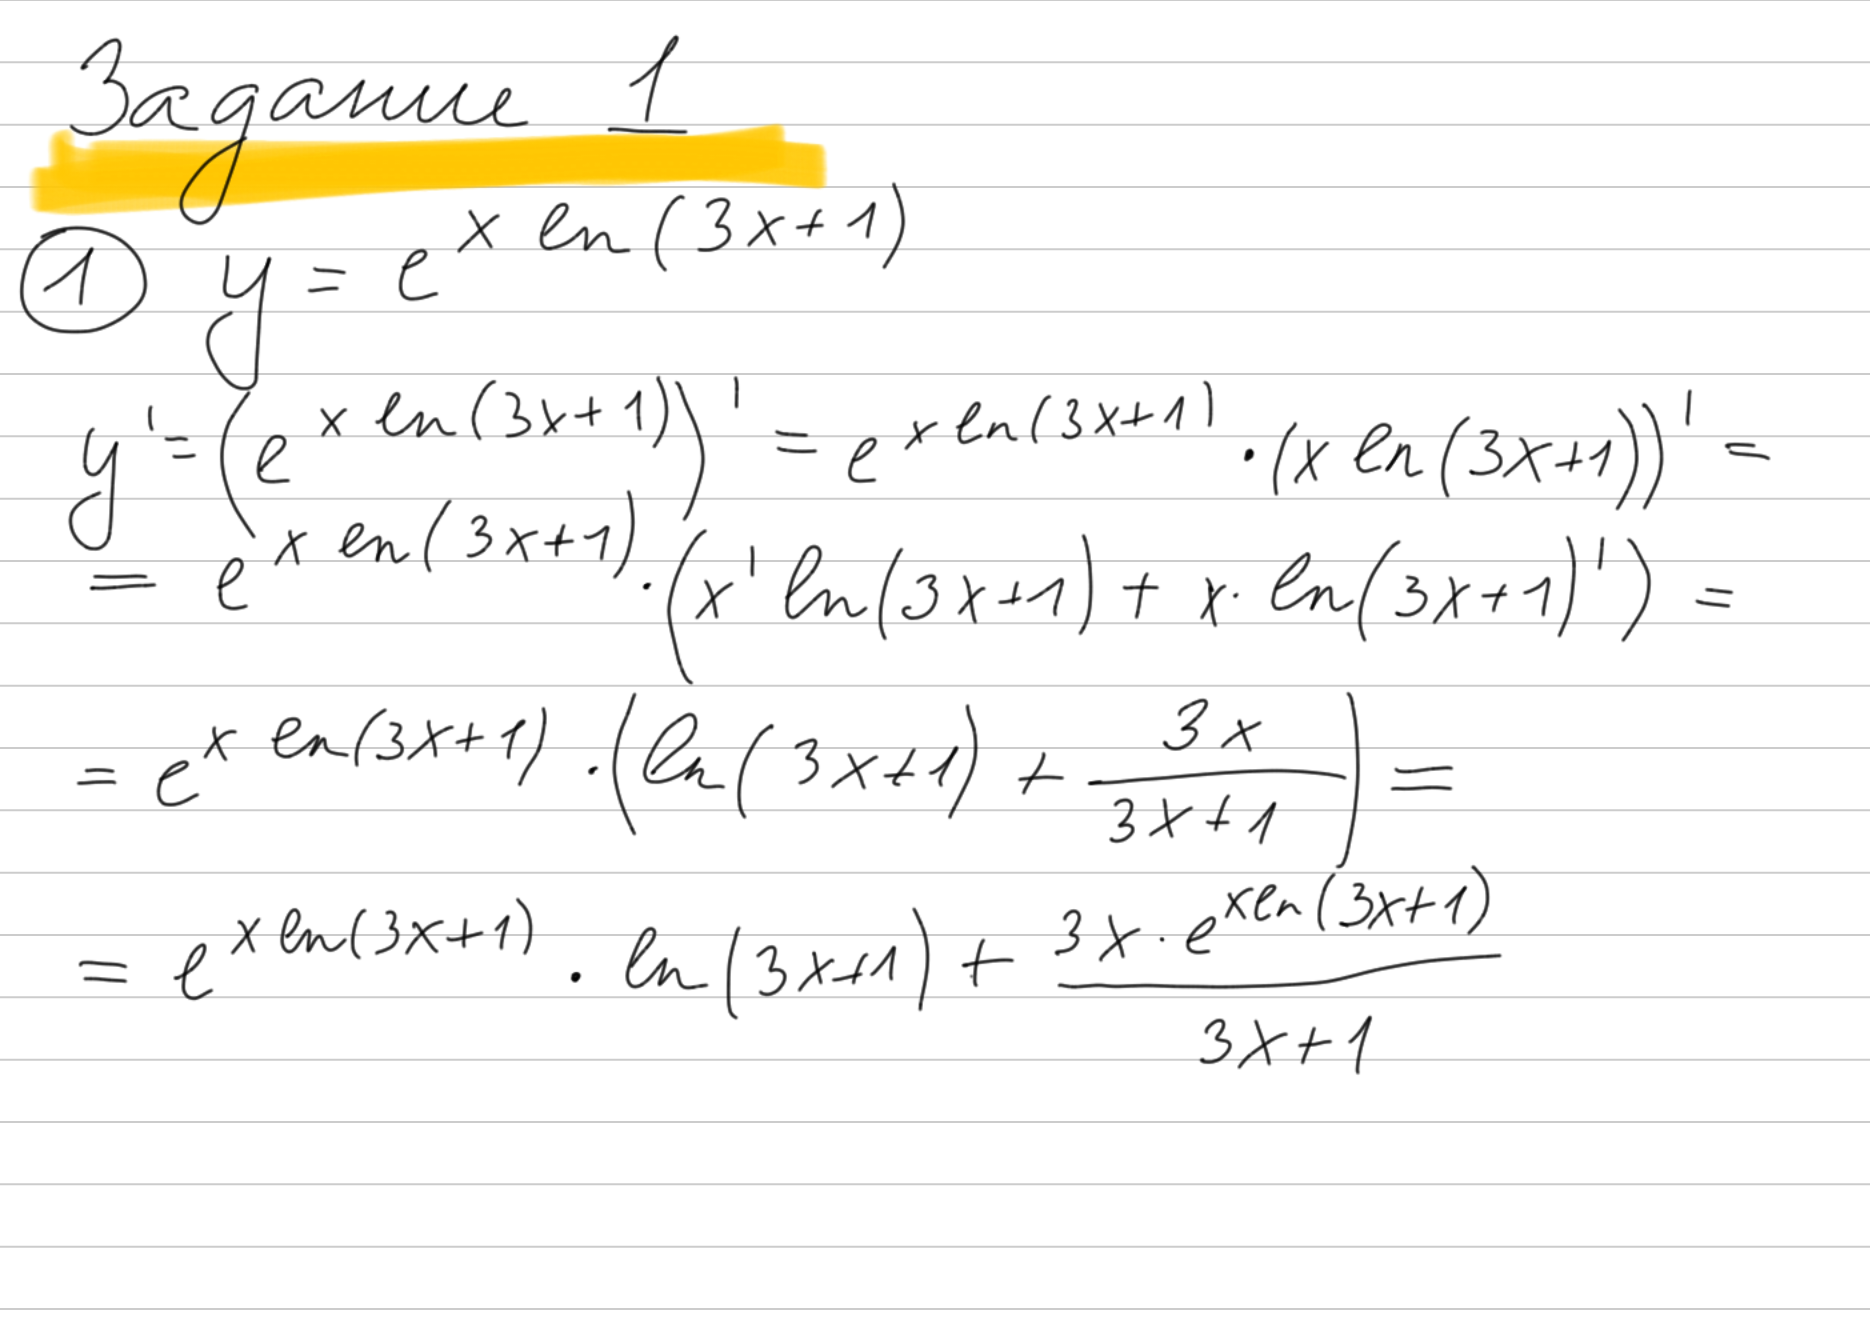 Задание 1
① y = e^{x ln(3x+1)}
y' = (e^{x ln(3x+1)})' = e^{x ln(3x+1)} · (x ln(3x+1))' =
= e^{x ln(3x+1)} · (x' ln(3x+1) + x · ln(3x+1)') =
= e^{x ln(3x+1)} · (ln(3x+1) + \frac{3x}{3x+1}) =
= e^{x ln(3x+1)} · ln(3x+1) + \frac{3x · e^{x ln(3x+1)}}{3x+1}